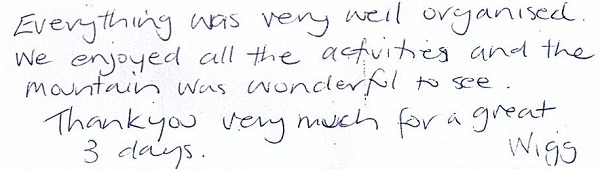 Everything was very well organised.
We enjoyed all the activities and the
mountain was wonderful to see.
Thankyou very much for a great
3 days. Wigg